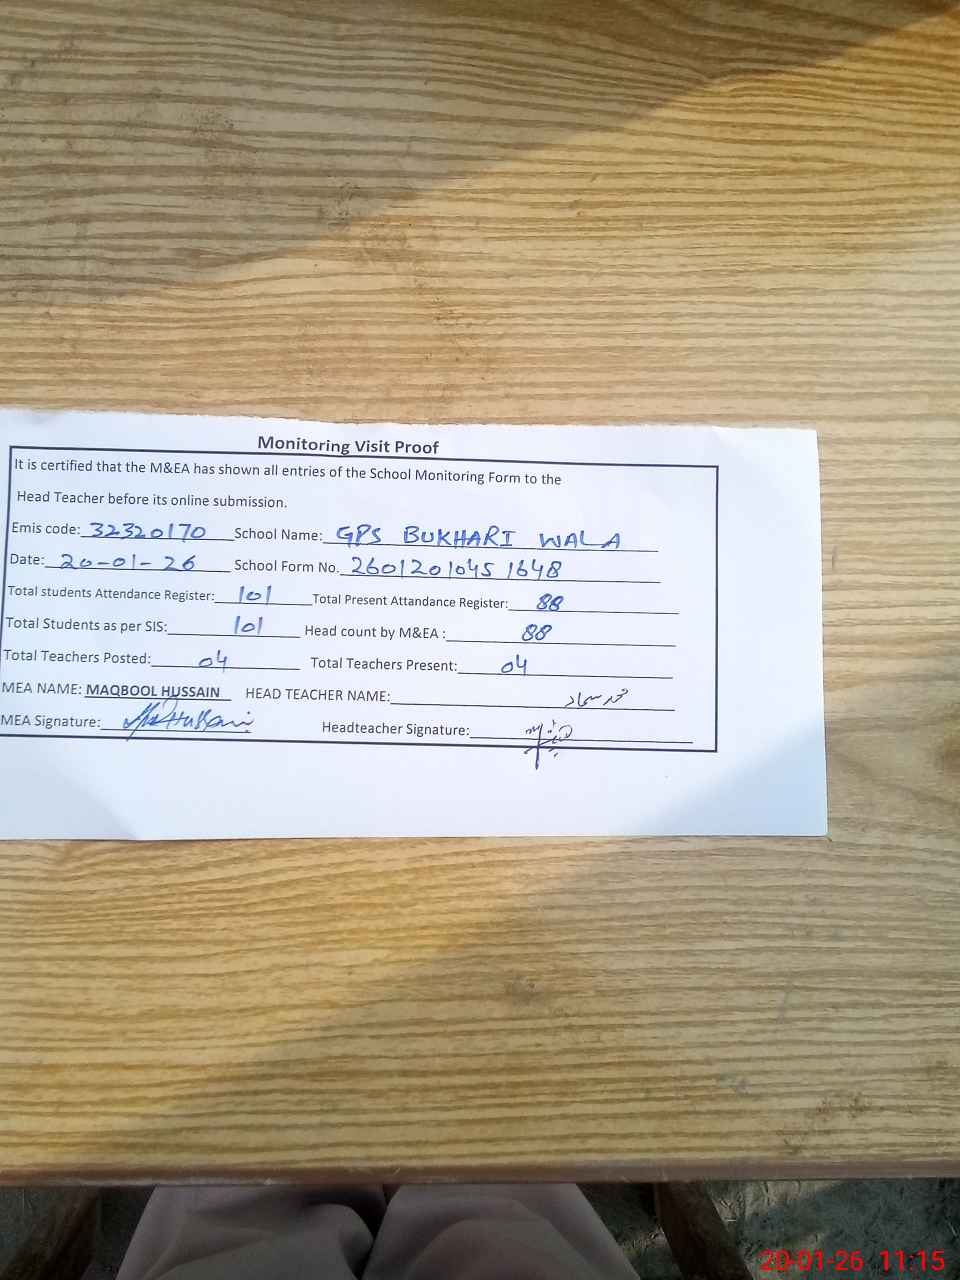 Monitoring Visit Proof
It is certified that the M&EA has shown all entries of the School Monitoring Form to the
Head Teacher before its online submission.
Emis code: 32320170 School Name: GPS BUKHARI WALA
Date: 20-01-26 School Form No. 26012010451648
Total students Attendance Register: 101 Total Present Attandance Register: 88
Total Students as per SIS: 101 Head count by M&EA : 88
Total Teachers Posted: 04 Total Teachers Present: 04
MEA NAME: MAQBOOL HUSSAIN HEAD TEACHER NAME: محمد
MEA Signature: Hussain Headteacher Signature:
20-01-26 11:15